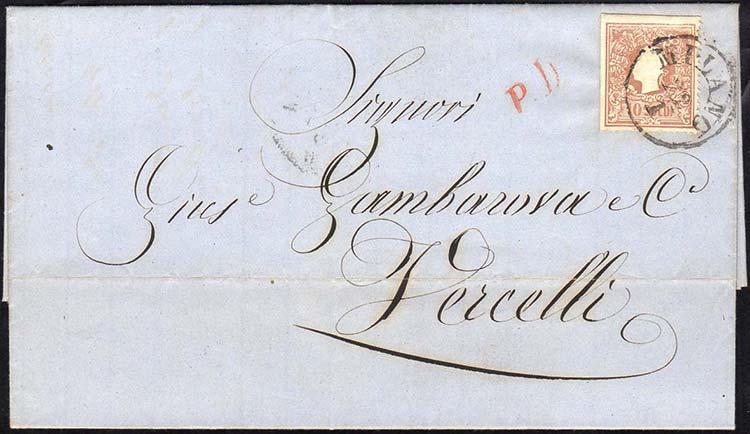 P.D
MILANO
10 SOLDI
Signori
Gius.e Gambarova e C.i
Vercelli